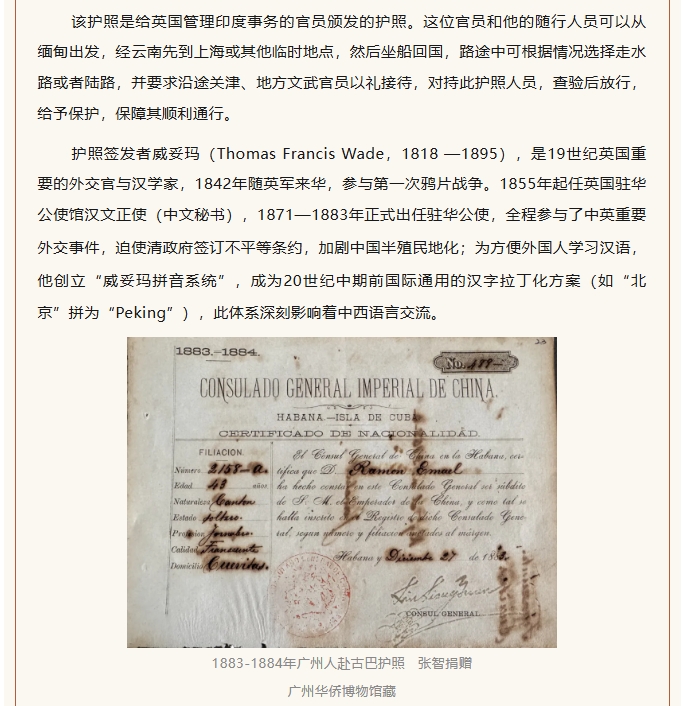 该护照是给英国管理印度事务的官员颁发的护照。这位官员和他的随行人员可以从
缅甸出发，经云南先到上海或其他临时地点，然后坐船回国，路途中可根据情况选择走水
路或者陆路，并要求沿途关津、地方文武官员以礼接待，对持此护照人员，查验后放行，
给予保护，保障其顺利通行。
护照签发者威妥玛（Thomas Francis Wade，1818 —1895），是19世纪英国重
要的外交官与汉学家，1842年随英军来华，参与第一次鸦片战争。1855年起任英国驻华
公使馆汉文正使（中文秘书），1871—1883年正式出任驻华公使，全程参与了中英重要
外交事件，迫使清政府签订不平等条约，加剧中国半殖民地化；为方便外国人学习汉语，
他创立“威妥玛拼音系统”，成为20世纪中期前国际通用的汉字拉丁化方案（如“北
京”拼为“Peking”），此体系深刻影响着中西语言交流。
1883.-1884.
No.
CONSULADO GENERAL IMPERIAL DE CHINA.
HABANA.—ISLA DE CUBA.
CERTIFICADO DE NACIONALIDAD.
FILIACION.
Número 2158-a
Edad 43 años
Naturaleza Canton
Estado soltero
Profesion Jornalero
Calidad Transeunte
Domicilio Cuevitas.
El Consul General de China en la Habana, cer-
tifica que D. Ramon Emael
ha hecho constar en este Consulado General ser súbdito
de S. M. el Emperador de la China, y como tal se
halla inscrito en el Registro de dicho Consulado Gene-
ral, segun número y filiacion anotados al márgen.
Habana y Diciembre 27 de 188
CONSUL GENERAL.
1883-1884年广州人赴古巴护照 张智捐赠
广州华侨博物馆藏